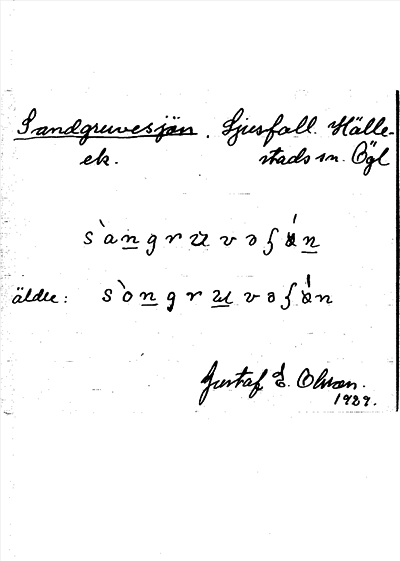 Sandgruvesjön. Ljusfall. Hälle-
ek. stads sn. Ögl
s`angruvəʃön
äldre: s`ongruvəʃön
Gustaf E. Olson.
1929.